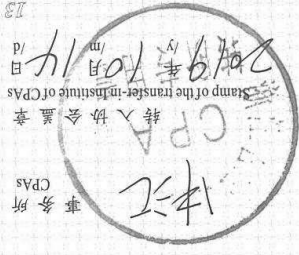 事务所
CPAs
CPA
转入协会盖章
Stamp of the transfer-in Institute of CPAs
2019年10月14日
/y /m /d
13